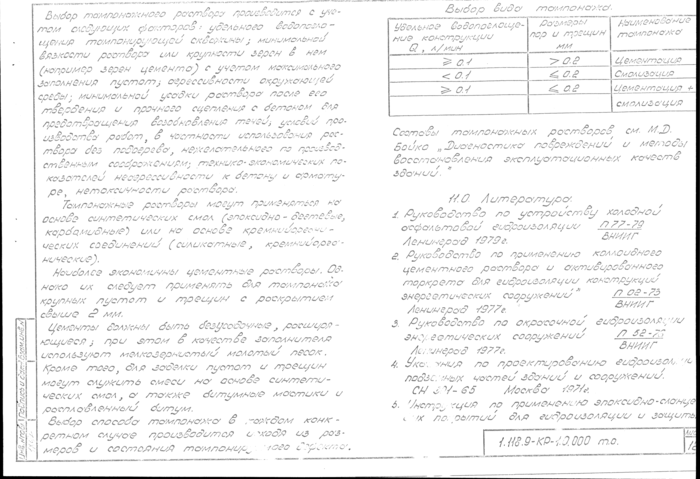 Выбор тампонажного раствора производится с уче-
том следующих факторов: удельного водопогло-
щения тампонируемой скважины; минимальной
вязкости раствора или крупности зерен в нем
(например зерен цемента) с учетом максимального
заполнения пустот; агрессивности окружающей
среды; минимальной усадки раствора после его
твердения и прочного сцепления с бетоном для
предотвращения возобновления течей, условий про-
изводства работ, в частности использования рас-
твора без подогрева, нежелательного по производ-
ственным соображениям; технико-экономических по-
казателей неагрессивности к бетону и армату-
ре, нетоксичности раствора.
Тампонажные растворы могут применяться на
основе синтетических смол (эпоксидно-дегтевые,
карбамидные) или на основе кремнийоргани-
ческих соединений (силикатные, кремнийорга-
нические).
Наиболее экономичны цементные растворы. Од-
нако их следует применять для тампонажа
крупных пустот и трещин с раскрытием
свыше 2 мм.
Цементы должны быть безусадочные, расширя-
ющиеся; при этом в качестве заполнителя
используют мелкозернистый молотый песок.
Кроме того, для заделки пустот и трещин
могут служить смеси на основе синтети-
ческих смол, а также битумные мастики и
расплавленный битум.
Выбор способа тампонажа в каждом конк-
ретном случае производится исходя из раз-
меров и состояния тампонируемого
Выбор вида тампонажа.
Удельное водопоглоще-
ние конструкции
Q, л/мин
Размеры
пор и трещин
мм
Наименование
тампонажа
≥ 0.1 > 0.2 Цементация
< 0.1 ≤ 0.2 Смолизация
≥ 0.1 ≤ 0.2 Цементация +
смолизация
Составы тампонажных растворов, см. М.Д.
Бойко „Диагностика повреждений и методы
восстановления эксплуатационных качеств
зданий."
11.0. Литература
1. Руководство по устройству холодной
асфальтовой гидроизоляции П 77-79 ВНИИГ
Ленинград 1979г.
2. Руководство по применению коллоидного
цементного раствора и активированного
торкрета для гидроизоляции конструкций
энергетических сооружений" П 02-73 ВНИИГ
Ленинград 1977г.
3. Руководство по окрасочной гидроизоляции
энергетических сооружений ВНИИГ
Ленинград 1977г.
4. Указания по проектированию гидроизоляции
подземных частей зданий и сооружений.
СН 301-65 Москва 1971г.
5. Инструкция по применению эпоксидно-сланце-
вых покрытий для гидроизоляции и защиты
1.118.9-КР-1.0.000 т.о.